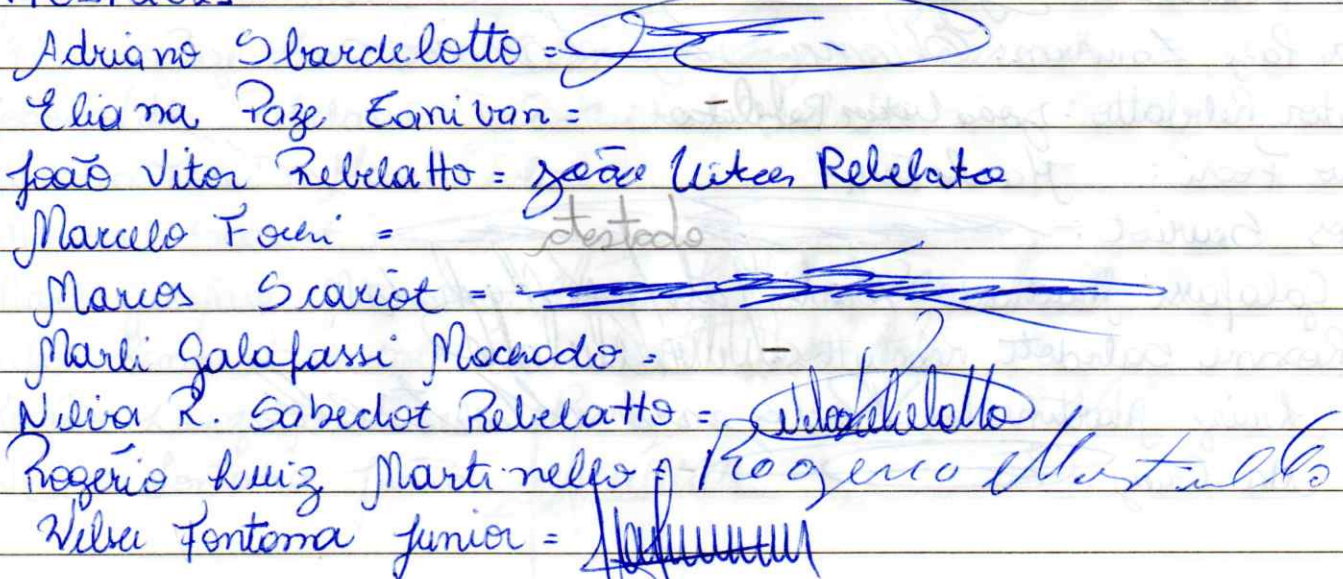 Adriano Sbardelotto =
Eliana Paze Zanivan = -
João Vitor Rebelatto = João Vitor Rebelatto
Marcelo Focri = atestado
Marcos Scariot =
Marli Galafassi Machado = -
Neiva R. Sabedot Rebelatto =
Rogério Luiz Martinello = Rogerio Martinello
Fontana Junior =